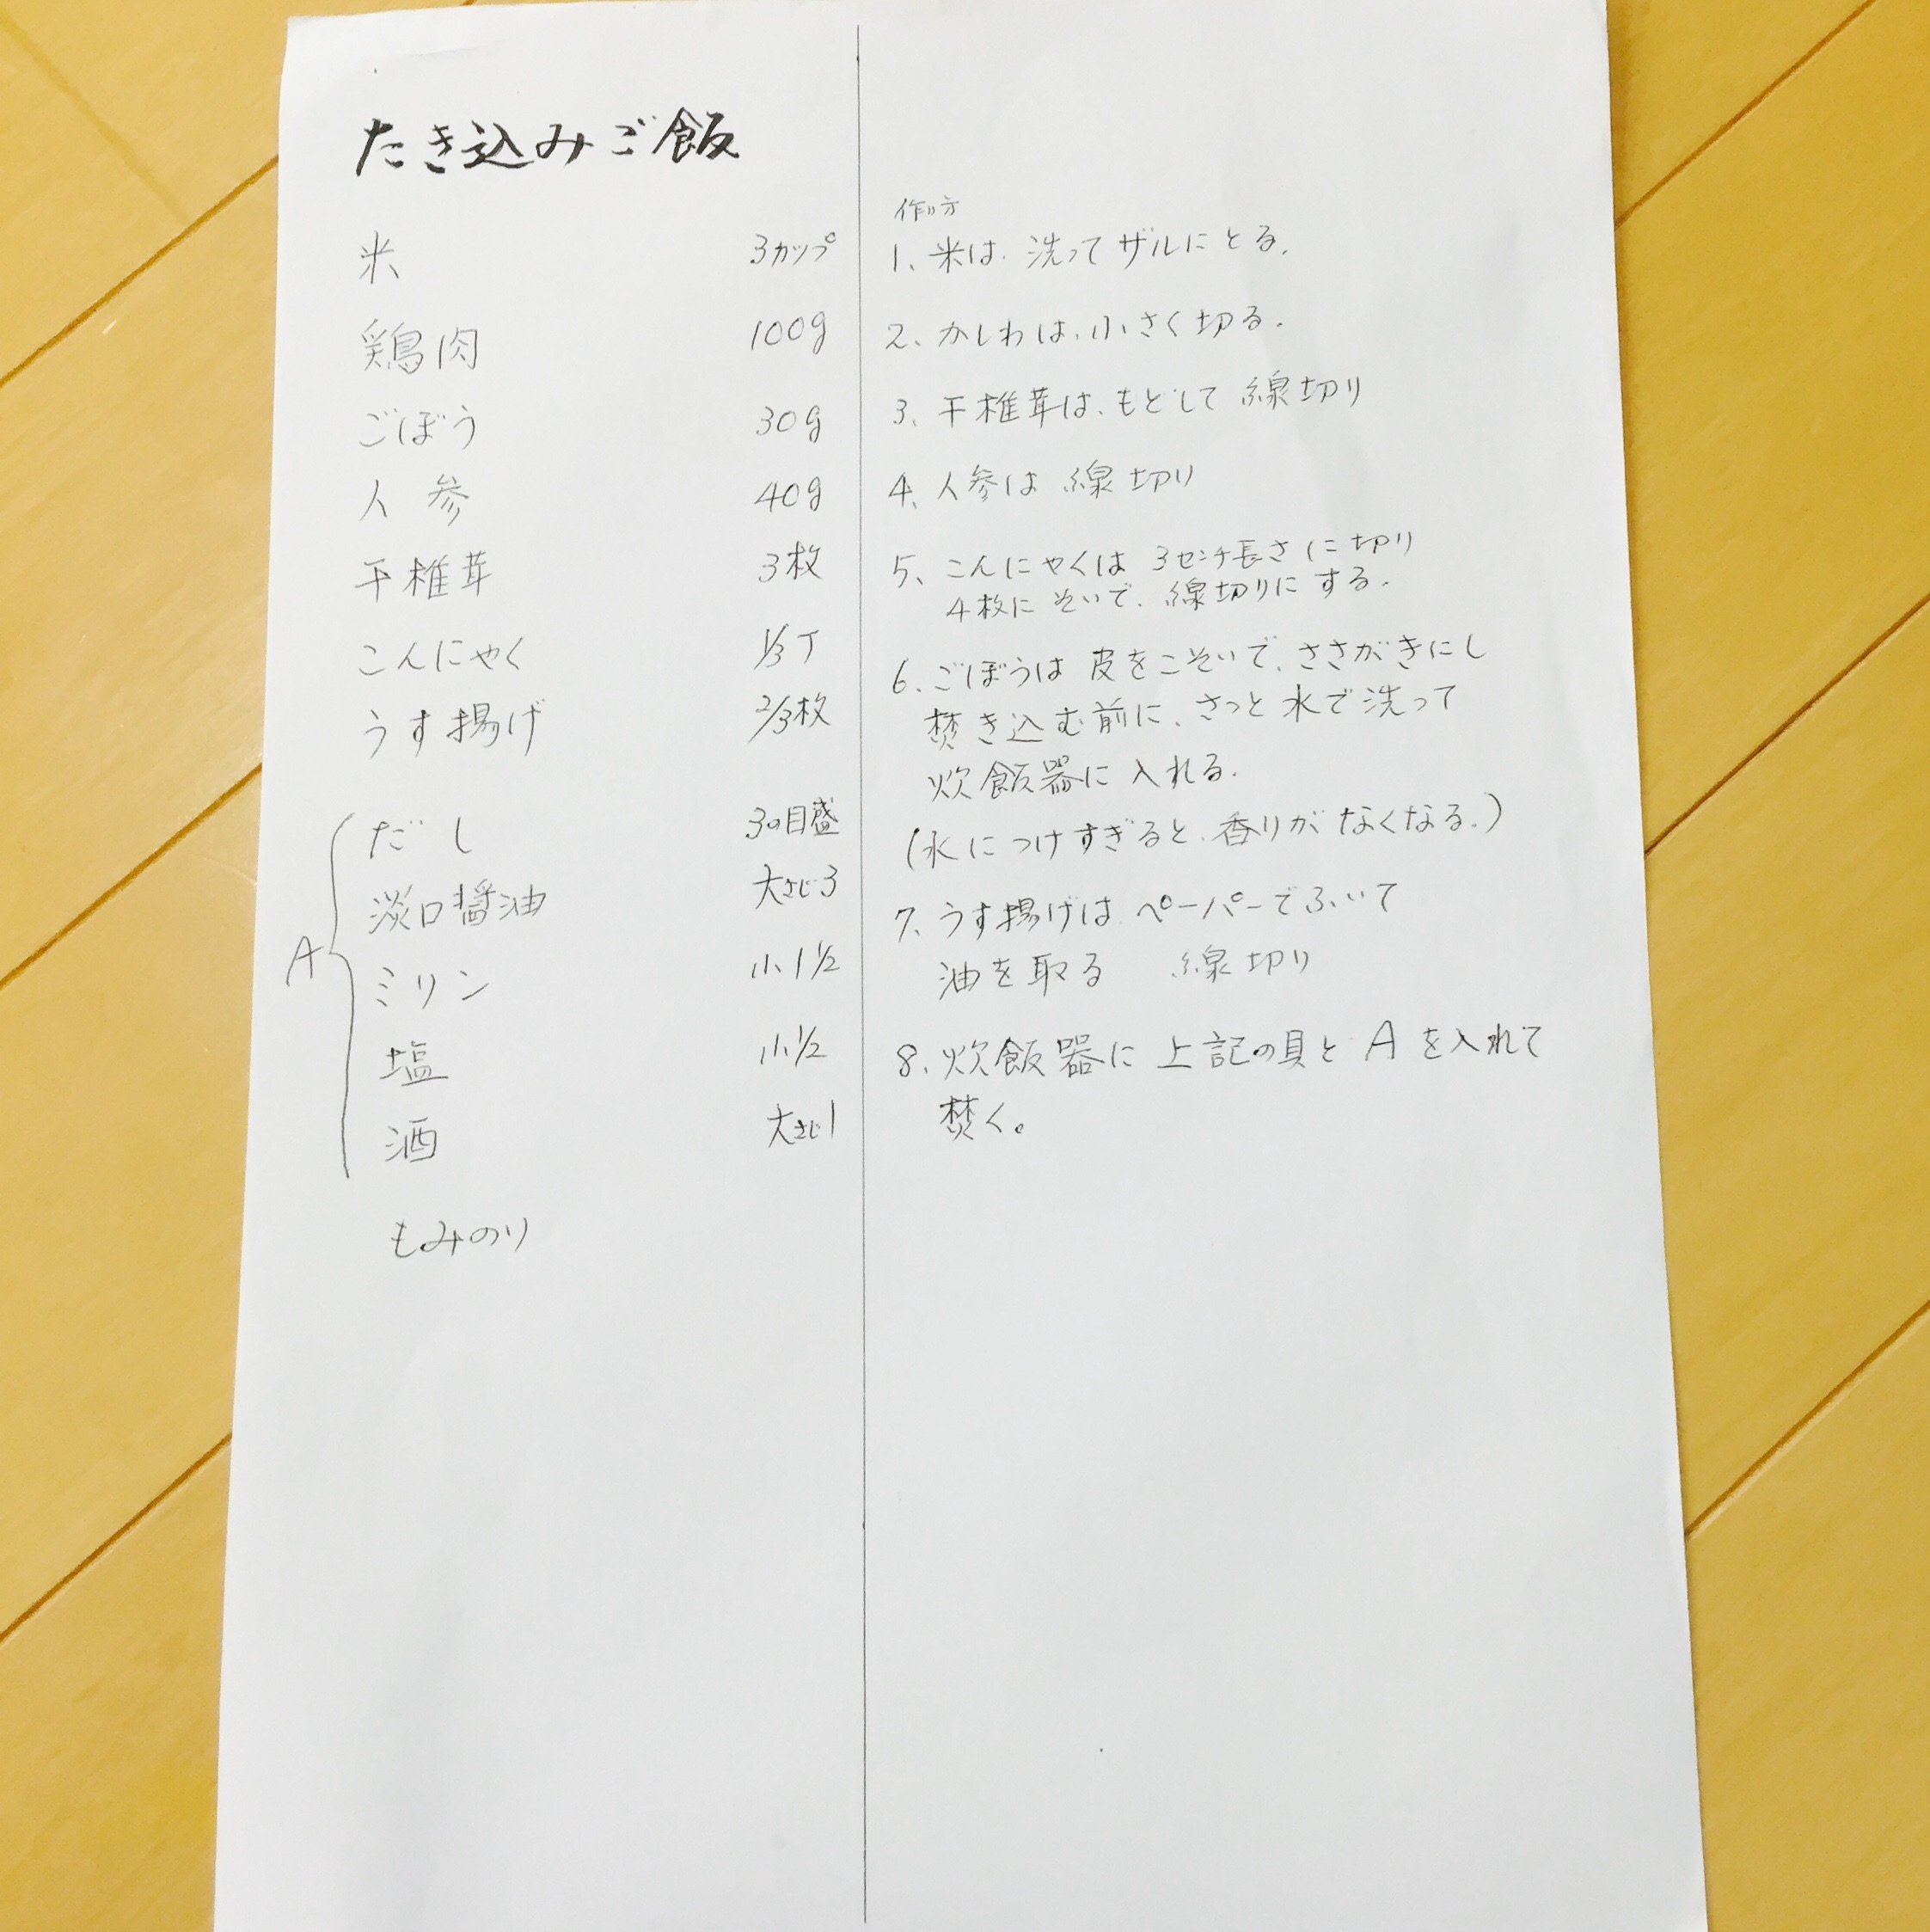 たき込みご飯
米 3カップ
鶏肉 100g
ごぼう 30g
人参 40g
干椎茸 3枚
こんにゃく 1/3丁
うす揚げ 2/3枚
A
だし 3の目盛
淡口醤油 大さじ3
ミリン 小1 1/2
塩 小1/2
酒 大さじ1
もみのり
作り方
1、米は、洗ってザルにとる。
2、かしわは、小さく切る。
3、干椎茸は、もどして 線切り
4、人参は 線切り
5、こんにゃくは 3センチ長さに切り
4枚に そいで、線切りにする。
6、ごぼうは 皮をこそいで、ささがきにし
焚き込む前に、さっと水で洗って
炊飯器に入れる。
(水につけすぎると、香りがなくなる。)
7、うす揚げは ペーパーでふいて
油を取る 線切り
8、炊飯器に 上記の具と Aを入れて
焚く。